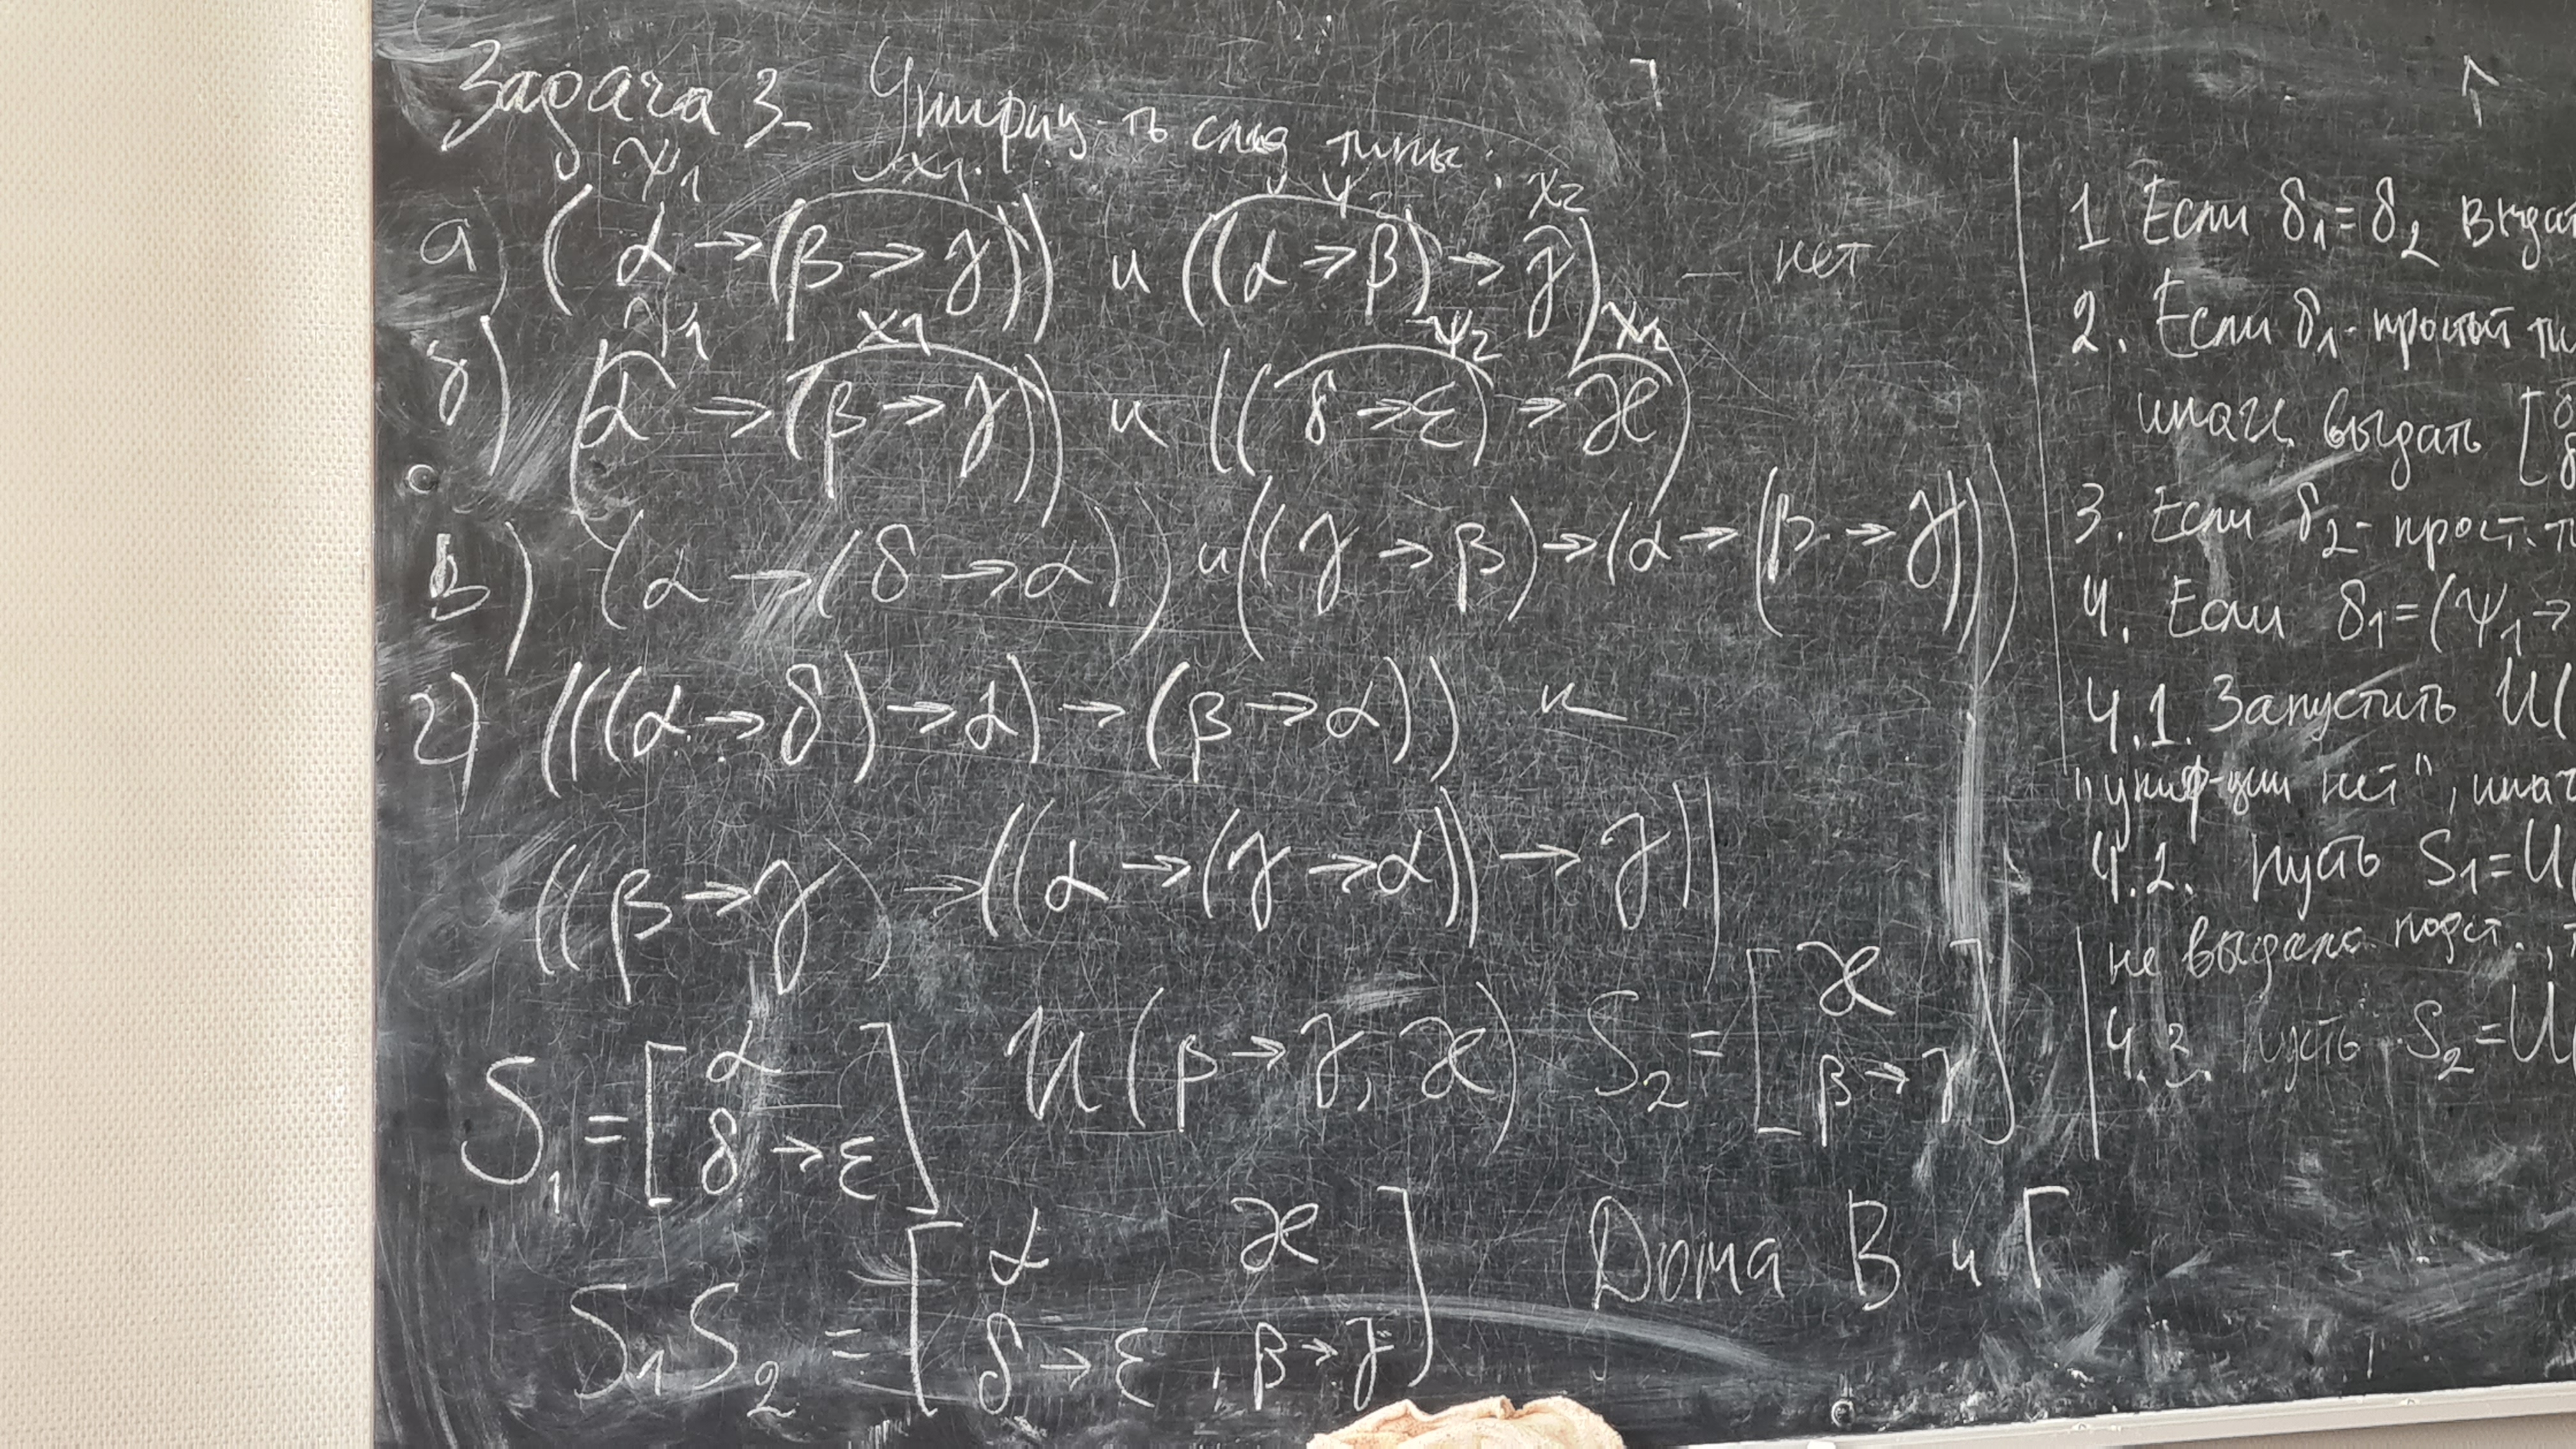 Задача 3. Унифиц-ть след типы:
ψ1 χ1 ψ2 χ2
а) (α → (β → γ)) и ((α → β) → γ) — нет
ψ1 χ1 ψ2 χ2
б) (α → (β → γ)) и ((δ → ε) → ϰ)
в) (α → (δ → α)) и ((γ → β) → (α → (β → γ)))
г) (((α → δ) → α) → (β → α)) и
((β → γ) → ((α → (γ → α)) → γ))
S1 = [α
δ → ε]
U(β → γ, ϰ) S2 = [ϰ
β → γ]
S1S2 = [α ϰ
δ → ε, β → γ]
Дома В и Г
1 Если δ1 = δ2
2. Если δ1 - простой
иначе выдать [
3. Если δ2 - прост.
4. Если δ1 = (ψ1 →
4.1. Запустить U(
"униф-ции нет",
4.2. Пусть S1 = U(
не выдала подст.,
4.3. Пусть S2 = U(